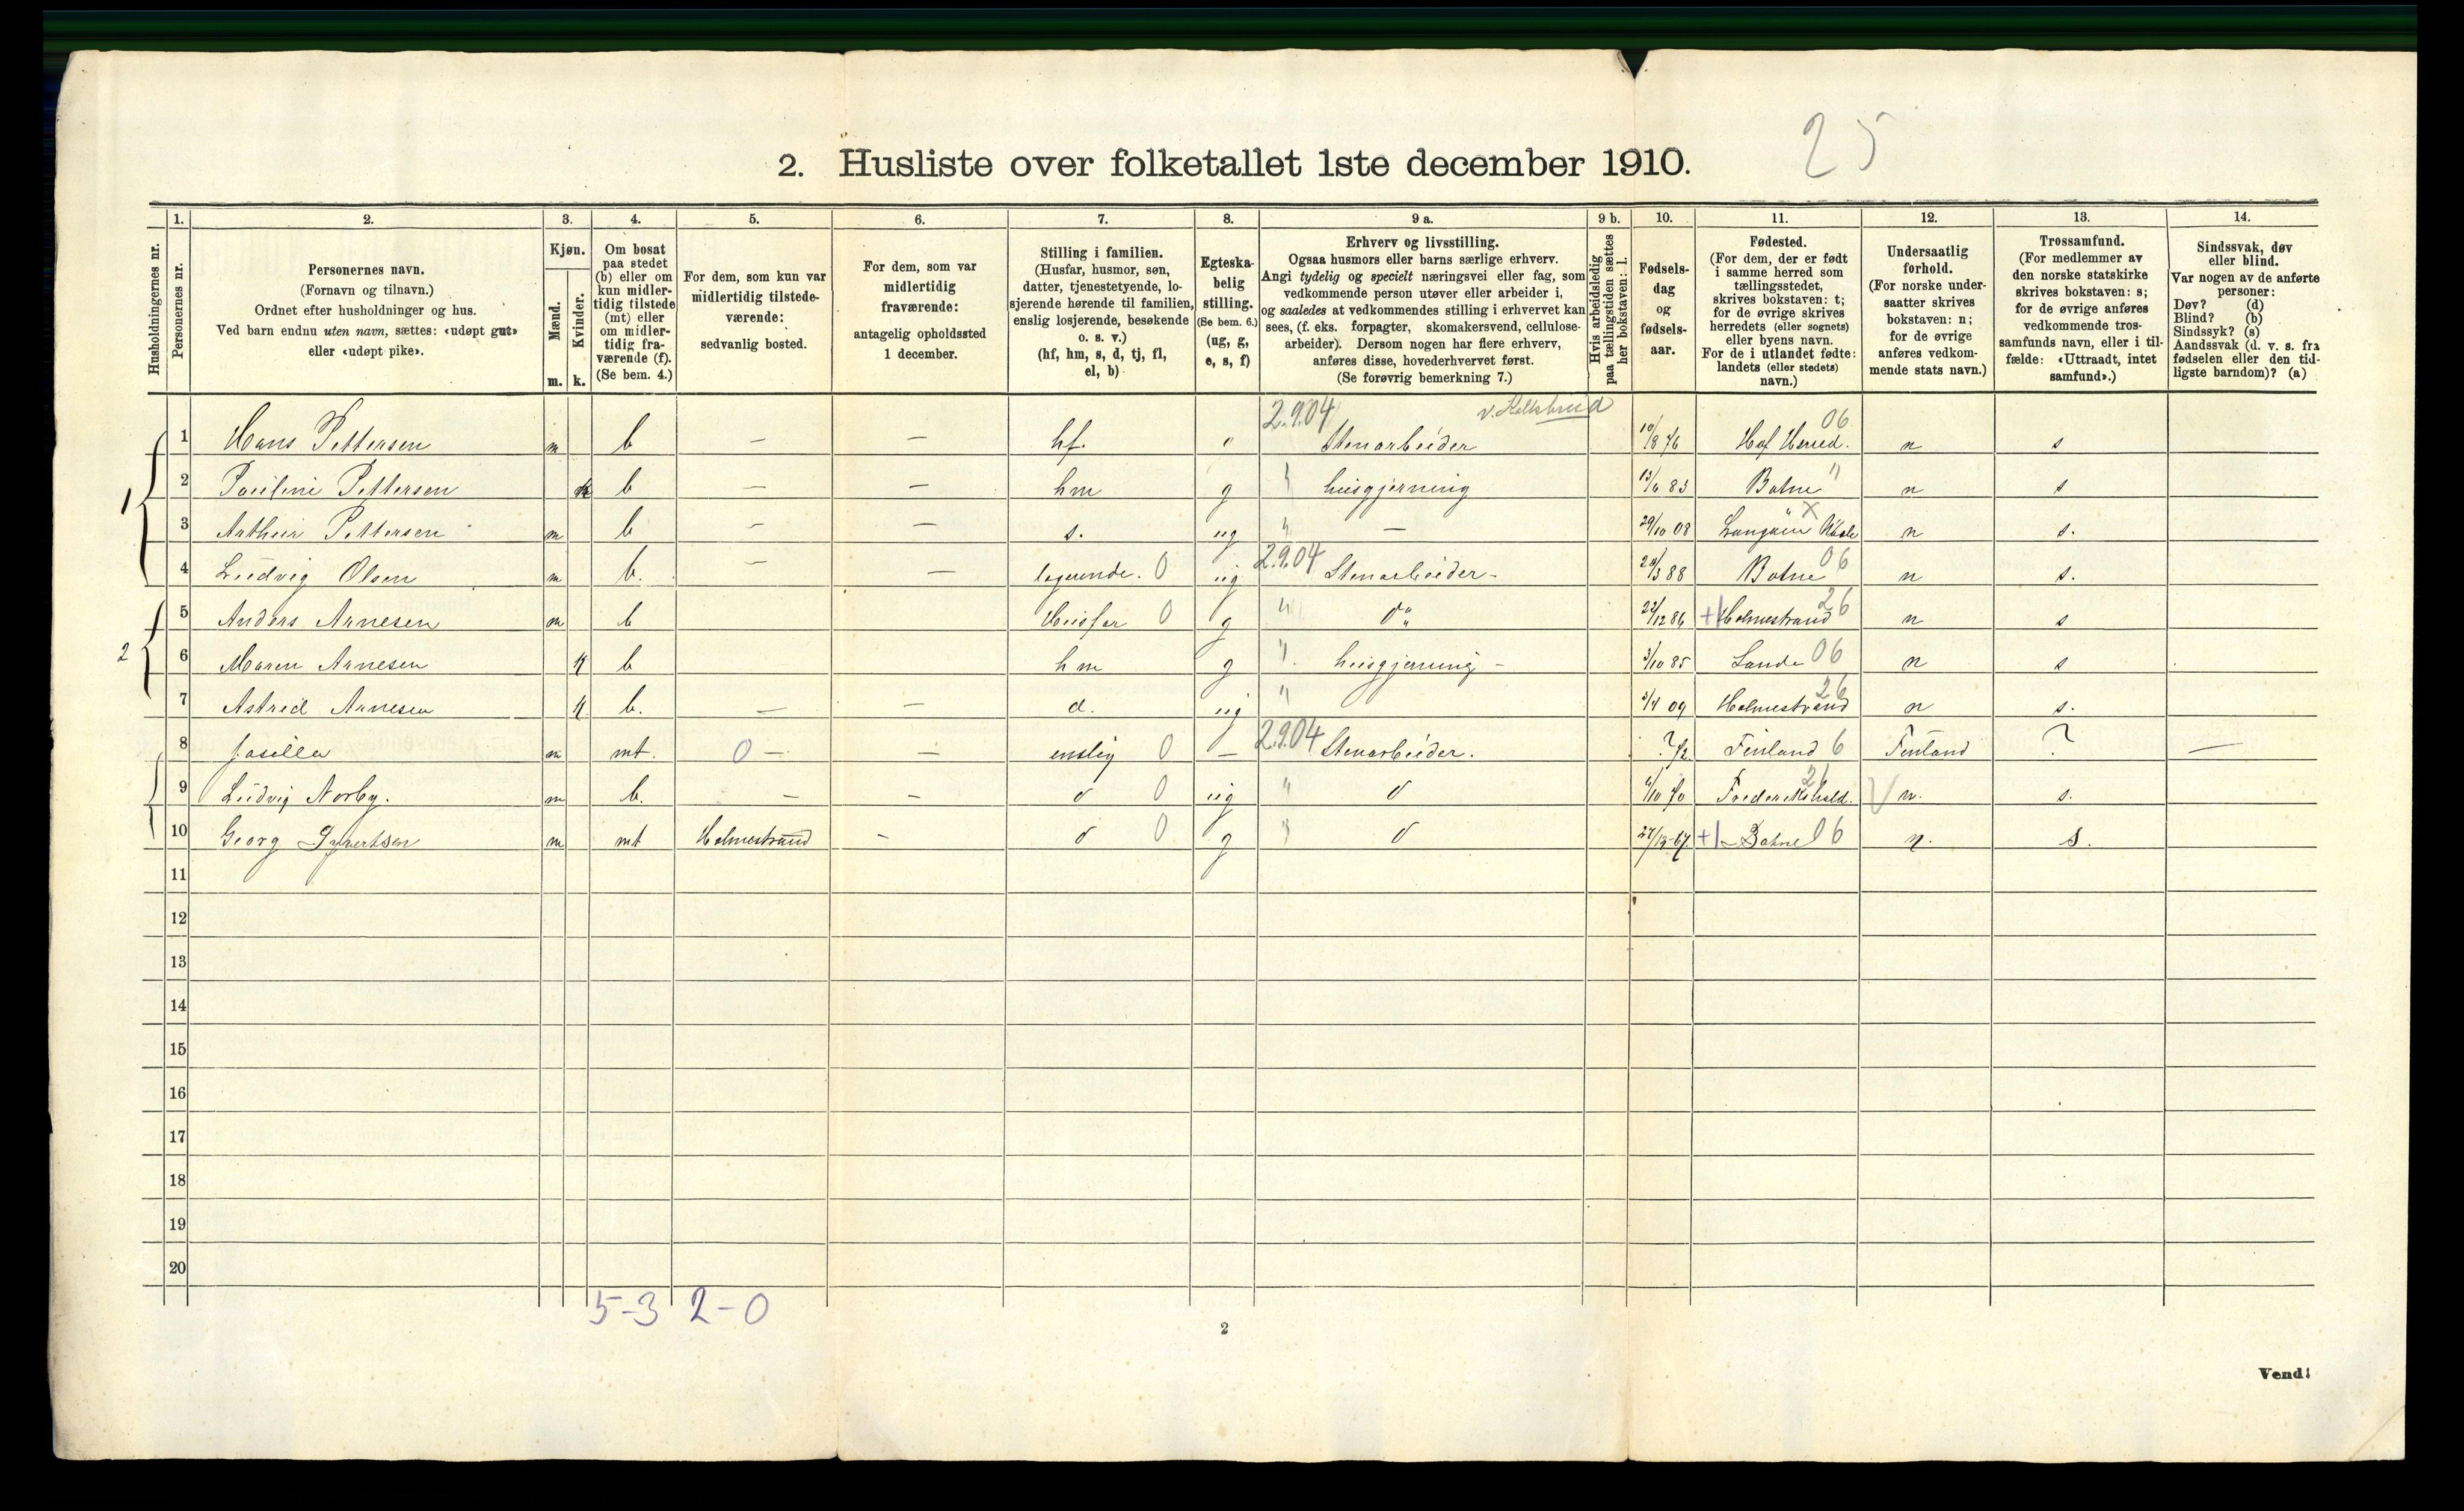 25
2. Husliste over folketallet 1ste december 1910.
1. 2. 3. 4. 5. 6. 7. 8. 9 a. 9 b. 10. 11. 12. 13. 14.
Husholdningernes nr.
Personernes nr.
Personernes navn.
(Fornavn og tilnavn.)
Ordnet efter husholdninger og hus.
Ved barn endnu uten navn, sættes: «udøpt gut»
eller «udøpt pike».
Kjøn.
Mænd.
Kvinder.
m. k.
Om bosat
paa stedet
(b) eller om
kun midler-
tidig tilstede
(mt) eller
om midler-
tidig fra-
værende (f).
(Se bem. 4.)
For dem, som kun var
midlertidig tilstede-
værende:
sedvanlig bosted.
For dem, som var
midlertidig
fraværende:
antagelig opholdssted
1 december.
Stilling i familien.
(Husfar, husmor, søn,
datter, tjenestetyende, lo-
sjerende hørende til familien,
enslig losjerende, besøkende
o. s. v.)
(hf, hm, s, d, tj, fl,
el, b)
Egteska-
belig
stilling.
(Se bem. 6.)
(ug, g,
e, s, f)
Erhverv og livsstilling.
Ogsaa husmors eller barns særlige erhverv.
Angi tydelig og specielt næringsvei eller fag, som
vedkommende person utøver eller arbeider i,
og saaledes at vedkommendes stilling i erhvervet kan
sees, (f. eks. forpagter, skomakersvend, cellulose-
arbeider). Dersom nogen har flere erhverv,
anføres disse, hovederhvervet først.
(Se forøvrig bemerkning 7.)
Hvis arbeidsledig
paa tællingstiden sættes
her bokstaven: l.
Fødsels-
dag
og
fødsels-
aar.
Fødested.
(For dem, der er født
i samme herred som
tællingsstedet,
skrives bokstaven: t;
for de øvrige skrives
herredets (eller sognets)
eller byens navn.
For de i utlandet fødte:
landets (eller stedets)
navn.)
Undersaatlig
forhold.
(For norske under-
saatter skrives
bokstaven: n;
for de øvrige
anføres vedkom-
mende stats navn.)
Trossamfund.
(For medlemmer av
den norske statskirke
skrives bokstaven: s;
for de øvrige anføres
vedkommende tros-
samfunds navn, eller i til-
fælde: «Uttraadt, intet
samfund».)
Sindssvak, døv
eller blind.
Var nogen av de anførte
personer:
Døv? (d)
Blind? (b)
Sindssyk? (s)
Aandssvak (d. v. s. fra
fødselen eller den tid-
ligste barndom)? (a)
2.9.04 06
1 Hans Pettersen m b — — hf. " Stenarbeider 10/8 76 Hof Herred. n s
1 2 Pauline Pettersen k b — — hm g " husgjerning 13/6 83 Botne " n s
3 Arthur Pettersen m b — — s. ug " — 29/10 08 n s.
4 Ludvig Olsen m b. — — logerende. 0 ug 2.9.04 Stenarbeider - 20/3 88 Botne 06 n s.
5 Anders Arnesen m b Husfar 0 g " do " 22/12 86 +1 Holmestrand 26 n s
2 6 Maren Arnesen k b hm g " husgjerning - 3/10 85 Sande 06 n s
7 Astrid Arnesen k b. — — d. ug " 3/4 09 Holmestrand 26 n s.
8 m mt. 0 — — enslig 0 — 2.9.04 Stenarbeider. ? 72 Finland 6 Finland ? —
9 Ludvig Norby. m b. — — do 0 ug " do 6/10 70 Frederikshald. 21 n. s.
10 Georg Syvertsen m mt Holmestrand - do 0 g " do 27/12-67 +1 Botne 06 n. s.
11
12
13
14
15
16
17
18
19
20
5-3 2-0
2
Vend!